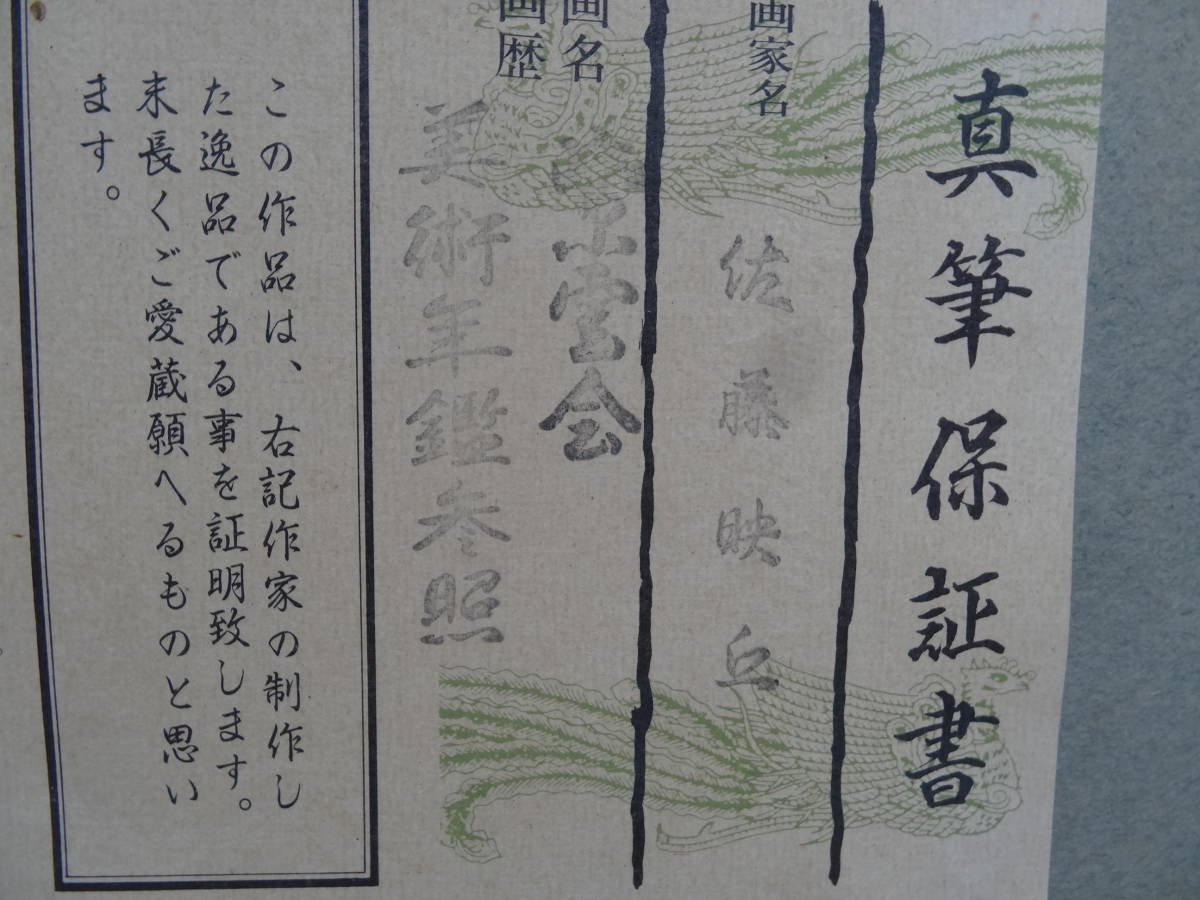 真筆保証書
画家名 佐藤映丘
画名 会
画歴 美術年鑑参照
この作品は、右記作家の制作し
た逸品である事を証明致します。
末長くご愛蔵願へるものと思い
ます。